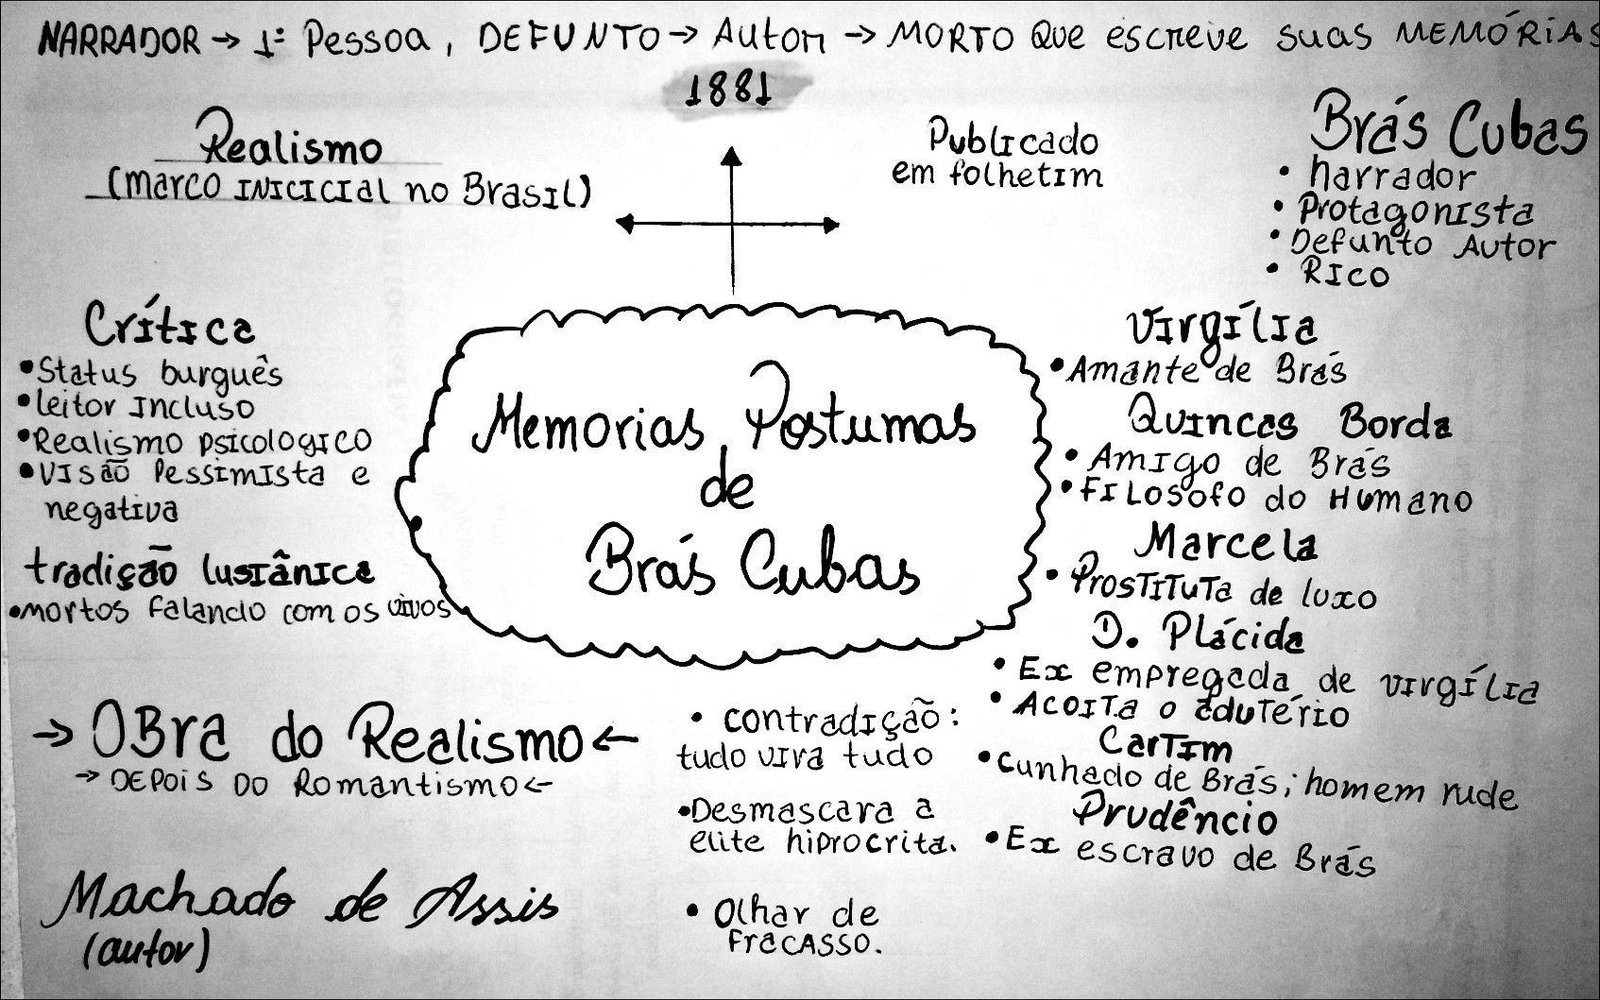 NARRADOR → 1ª Pessoa, DEFUNTO → Autor → MORTO Que escreve suas MEMÓRIAS
1881
Realismo
(marco INICICIAL no Brasil)
Publicado
em folhetim
Brás Cubas
• Narrador
• Protagonista
• Defunto Autor
• RICO
Crítica
• Status burguês
• leitor Incluso
• Realismo psicologico
• Visão Pessimista e
negativa
tradição lusiânica
• mortos falando com os vivos
Memorias Póstumas
de
Brás Cubas
Virgília
• Amante de Brás
Quincas Borda
• Amigo de Brás
• FILOSOFO do Humano
Marcela
• Prostituta de luxo
D. Plácida
• Ex empregada de virgília
• Acoita o adutério
Cartim
• Cunhado de Brás; homem rude
Prudêncio
• Ex escravo de Brás
→ OBra do Realismo ←
→ DEPOIS DO Romantismo ←
Machado de Assis
(autor)
• contradição:
tudo viva tudo
• Desmascara a
elite hiprocrita.
• Olhar de
Fracasso.